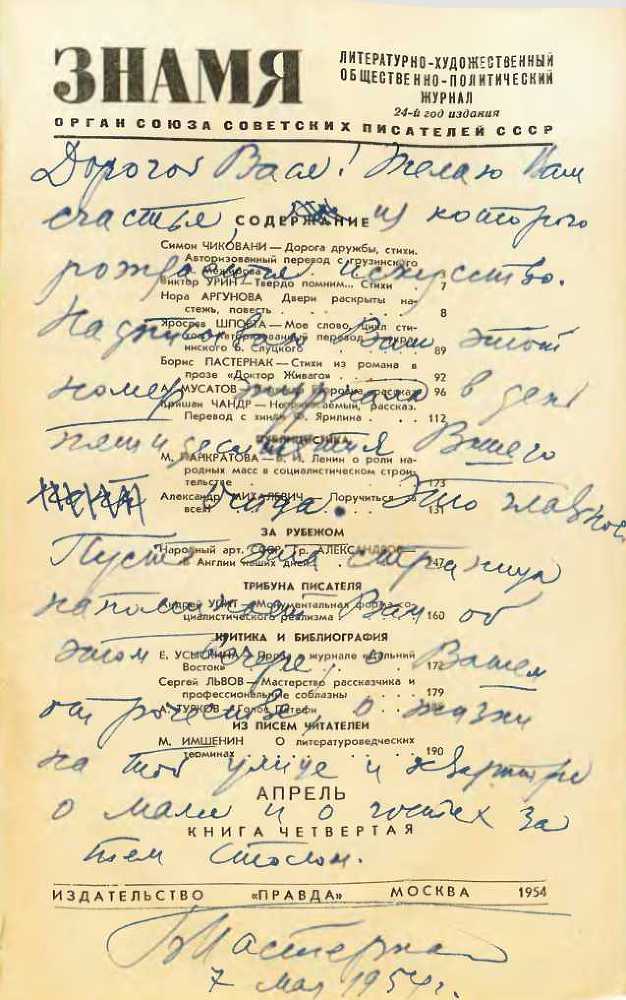 ЗНАМЯ
ЛИТЕРАТУРНО-ХУДОЖЕСТВЕННЫЙ
ОБЩЕСТВЕННО-ПОЛИТИЧЕСКИЙ
ЖУРНАЛ
24-й год издания
ОРГАН СОЮЗА СОВЕТСКИХ ПИСАТЕЛЕЙ СССР
Дорогой Вася! Желаю Вам
счастья, из которого
СОДЕРЖАНИЕ
Симон ЧИКОВАНИ — Дорога дружбы, стихи.
Авторизованный перевод с грузинского
рождается искусство.
Виктор УРИН — Твердо помним... Стихи . 7
Нора АРГУНОВА Двери раскрыты на-
стежь, повесть . . . . . . . 8
Надписываю Вам этот
Ярослав ШПОРТА — Мое слово, цикл сти-
89
Борис ПАСТЕРНАК — Стихи из романа в
прозе «Доктор Живаго» . . . . 92
номер журнала в день
А. МУСАТОВ рассказ 96
Кришан ЧАНДР — рассказ.
Перевод с хинди Ярилина . . 112
пятидесятилетия Вашего
ПУБЛИЦИСТИКА
М. ПАНКРАТОВА — В. И. Ленин о роли на-
родных масс в социалистическом строи-
тельстве 173
чида. Это главное.
Александр МИХАЛЕВИЧ — Поручиться за
всех 131
ЗА РУБЕЖОМ
Пусть эта страница
Народный арт. СССР Гр. АЛЕКСАНДРОВ —
в Англии наших дней 147
ТРИБУНА ПИСАТЕЛЯ
напоминает Вам об
Андрей УПИТ — Монументальная форма со-
циалистического реализма . . . . 160
КРИТИКА И БИБЛИОГРАФИЯ
этом вечере, о Вашем
Е. УСЫСКИНА — Проза в журнале «Дальний
Восток» 172
Сергей ЛЬВОВ — Мастерство рассказчика и
профессиональные соблазны . . . 179
отрочестве, о жизни
А. ТУРКОВ — Голос Петефи
ИЗ ПИСЕМ ЧИТАТЕЛЕЙ
М. ИМШЕНИН О литературоведческих
терминах . . . . . . . . 190
на той улице и квартире
АПРЕЛЬ
о маме и о гостях за
КНИГА ЧЕТВЕРТАЯ
тем столом.
ИЗДАТЕЛЬСТВО «ПРАВДА» МОСКВА 1954
БПастернак
7 мая 1954 г.